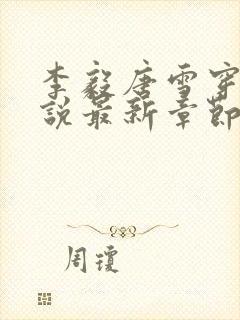 李毅唐雪穿
说最新章節
周瓊